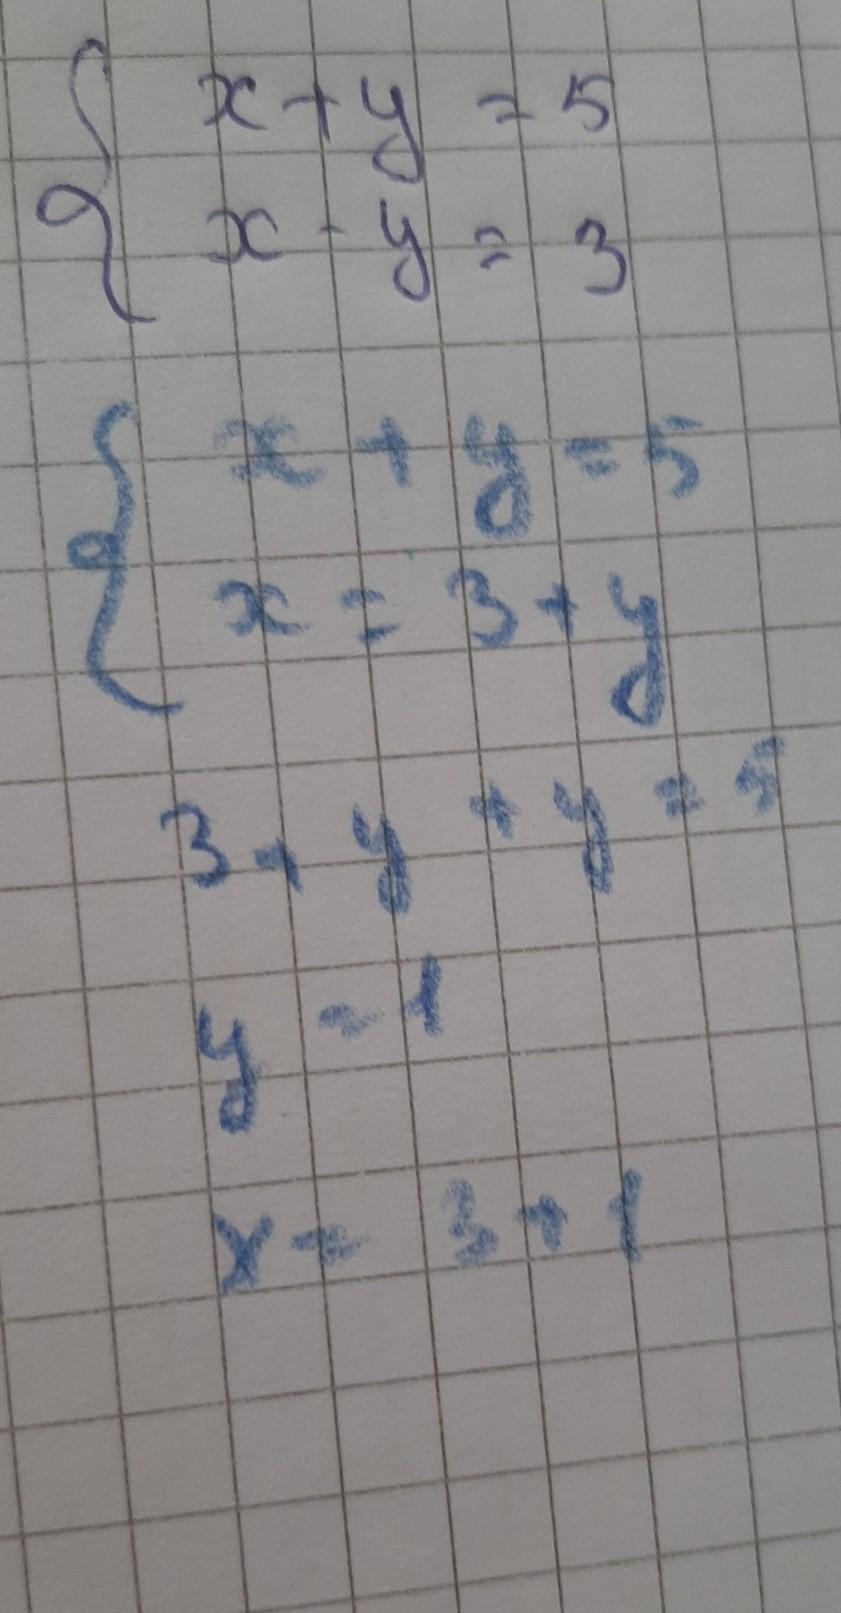 x + y = 5
x - y = 3
x + y = 5
x = 3 + y
3 + y + y = 5
y = 1
x = 3 + 1